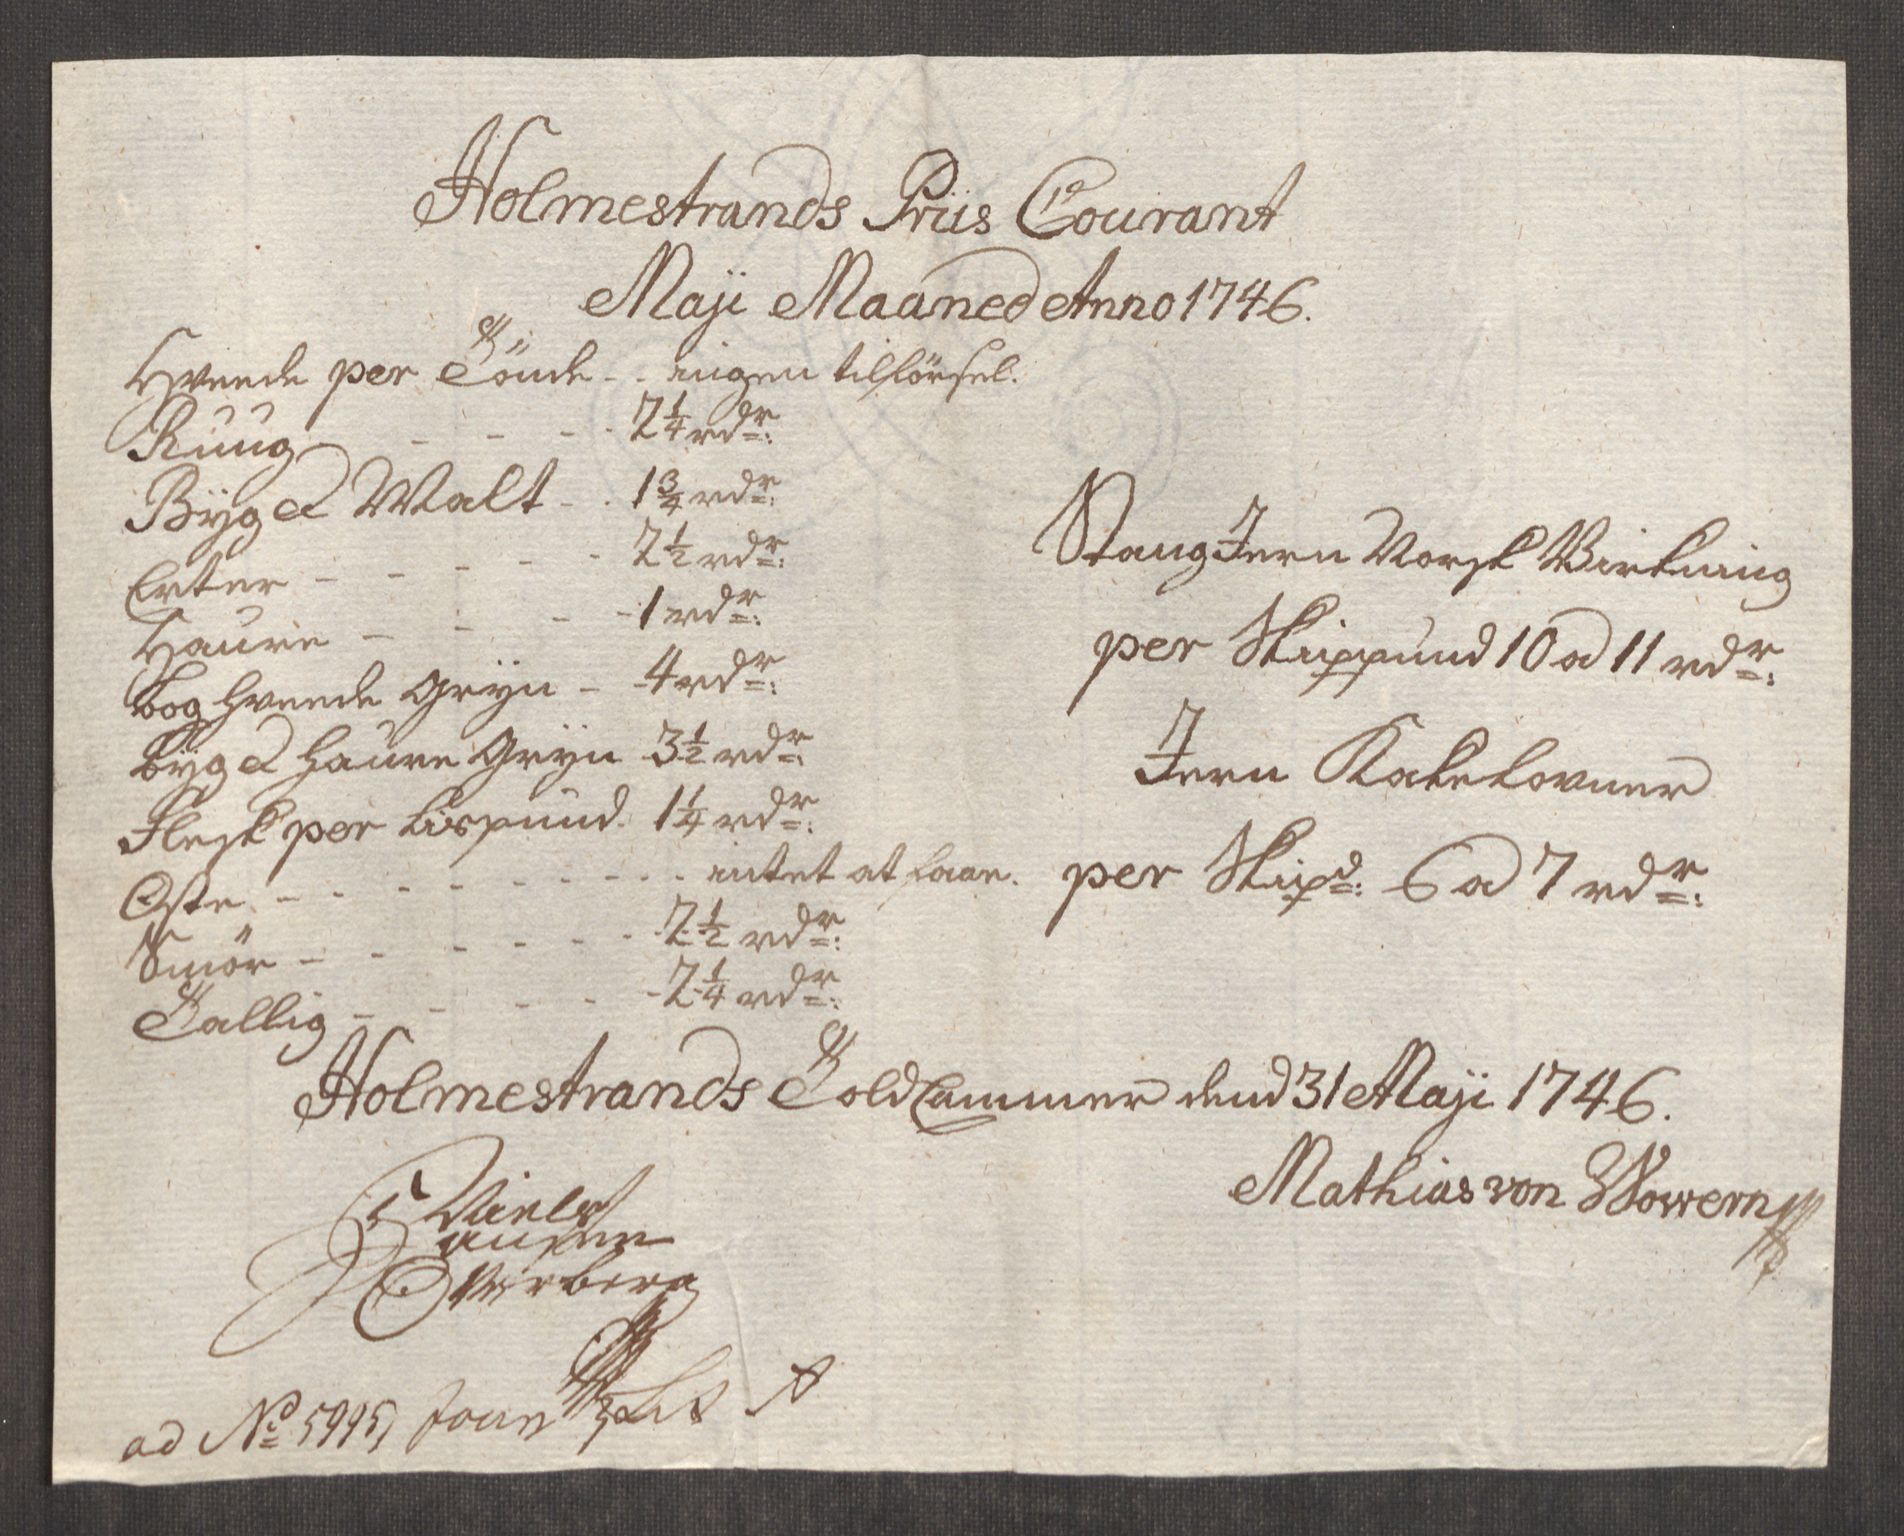 Holmestrands Priis Courant
Maji Maaned Anno 1746.
Hveede per Tönde - - ingen tilförsel.
Ruug - - - - 2 1/4 rdr:
Byg & Malt - - 1 3/4 rdr:
Erter - - - - - 2 1/2 rdr:
Haure - - - - 1 rdr:
Boghveede Gryn - 4 rdr:
Byg & Haure Gryn 3 1/2 rdr:
Flesk per Lispund 1 1/4 rdr:
Oste - - - - - - - - intet at faae.
Smör - - - - - - - 2 1/2 rdr:
Tallig - - - - - 2 1/4 rdr:
Stang Jern Norsk Virkning
per Skippund 10 a 11 rdr:
Jern Kakelovner
per Skipd: 6 a 7 rdr:
Holmestrands Told Cammer dend 31 Maji 1746.
Niels
Hansen
Overberg
Mathias von Wowern
ad No 5995